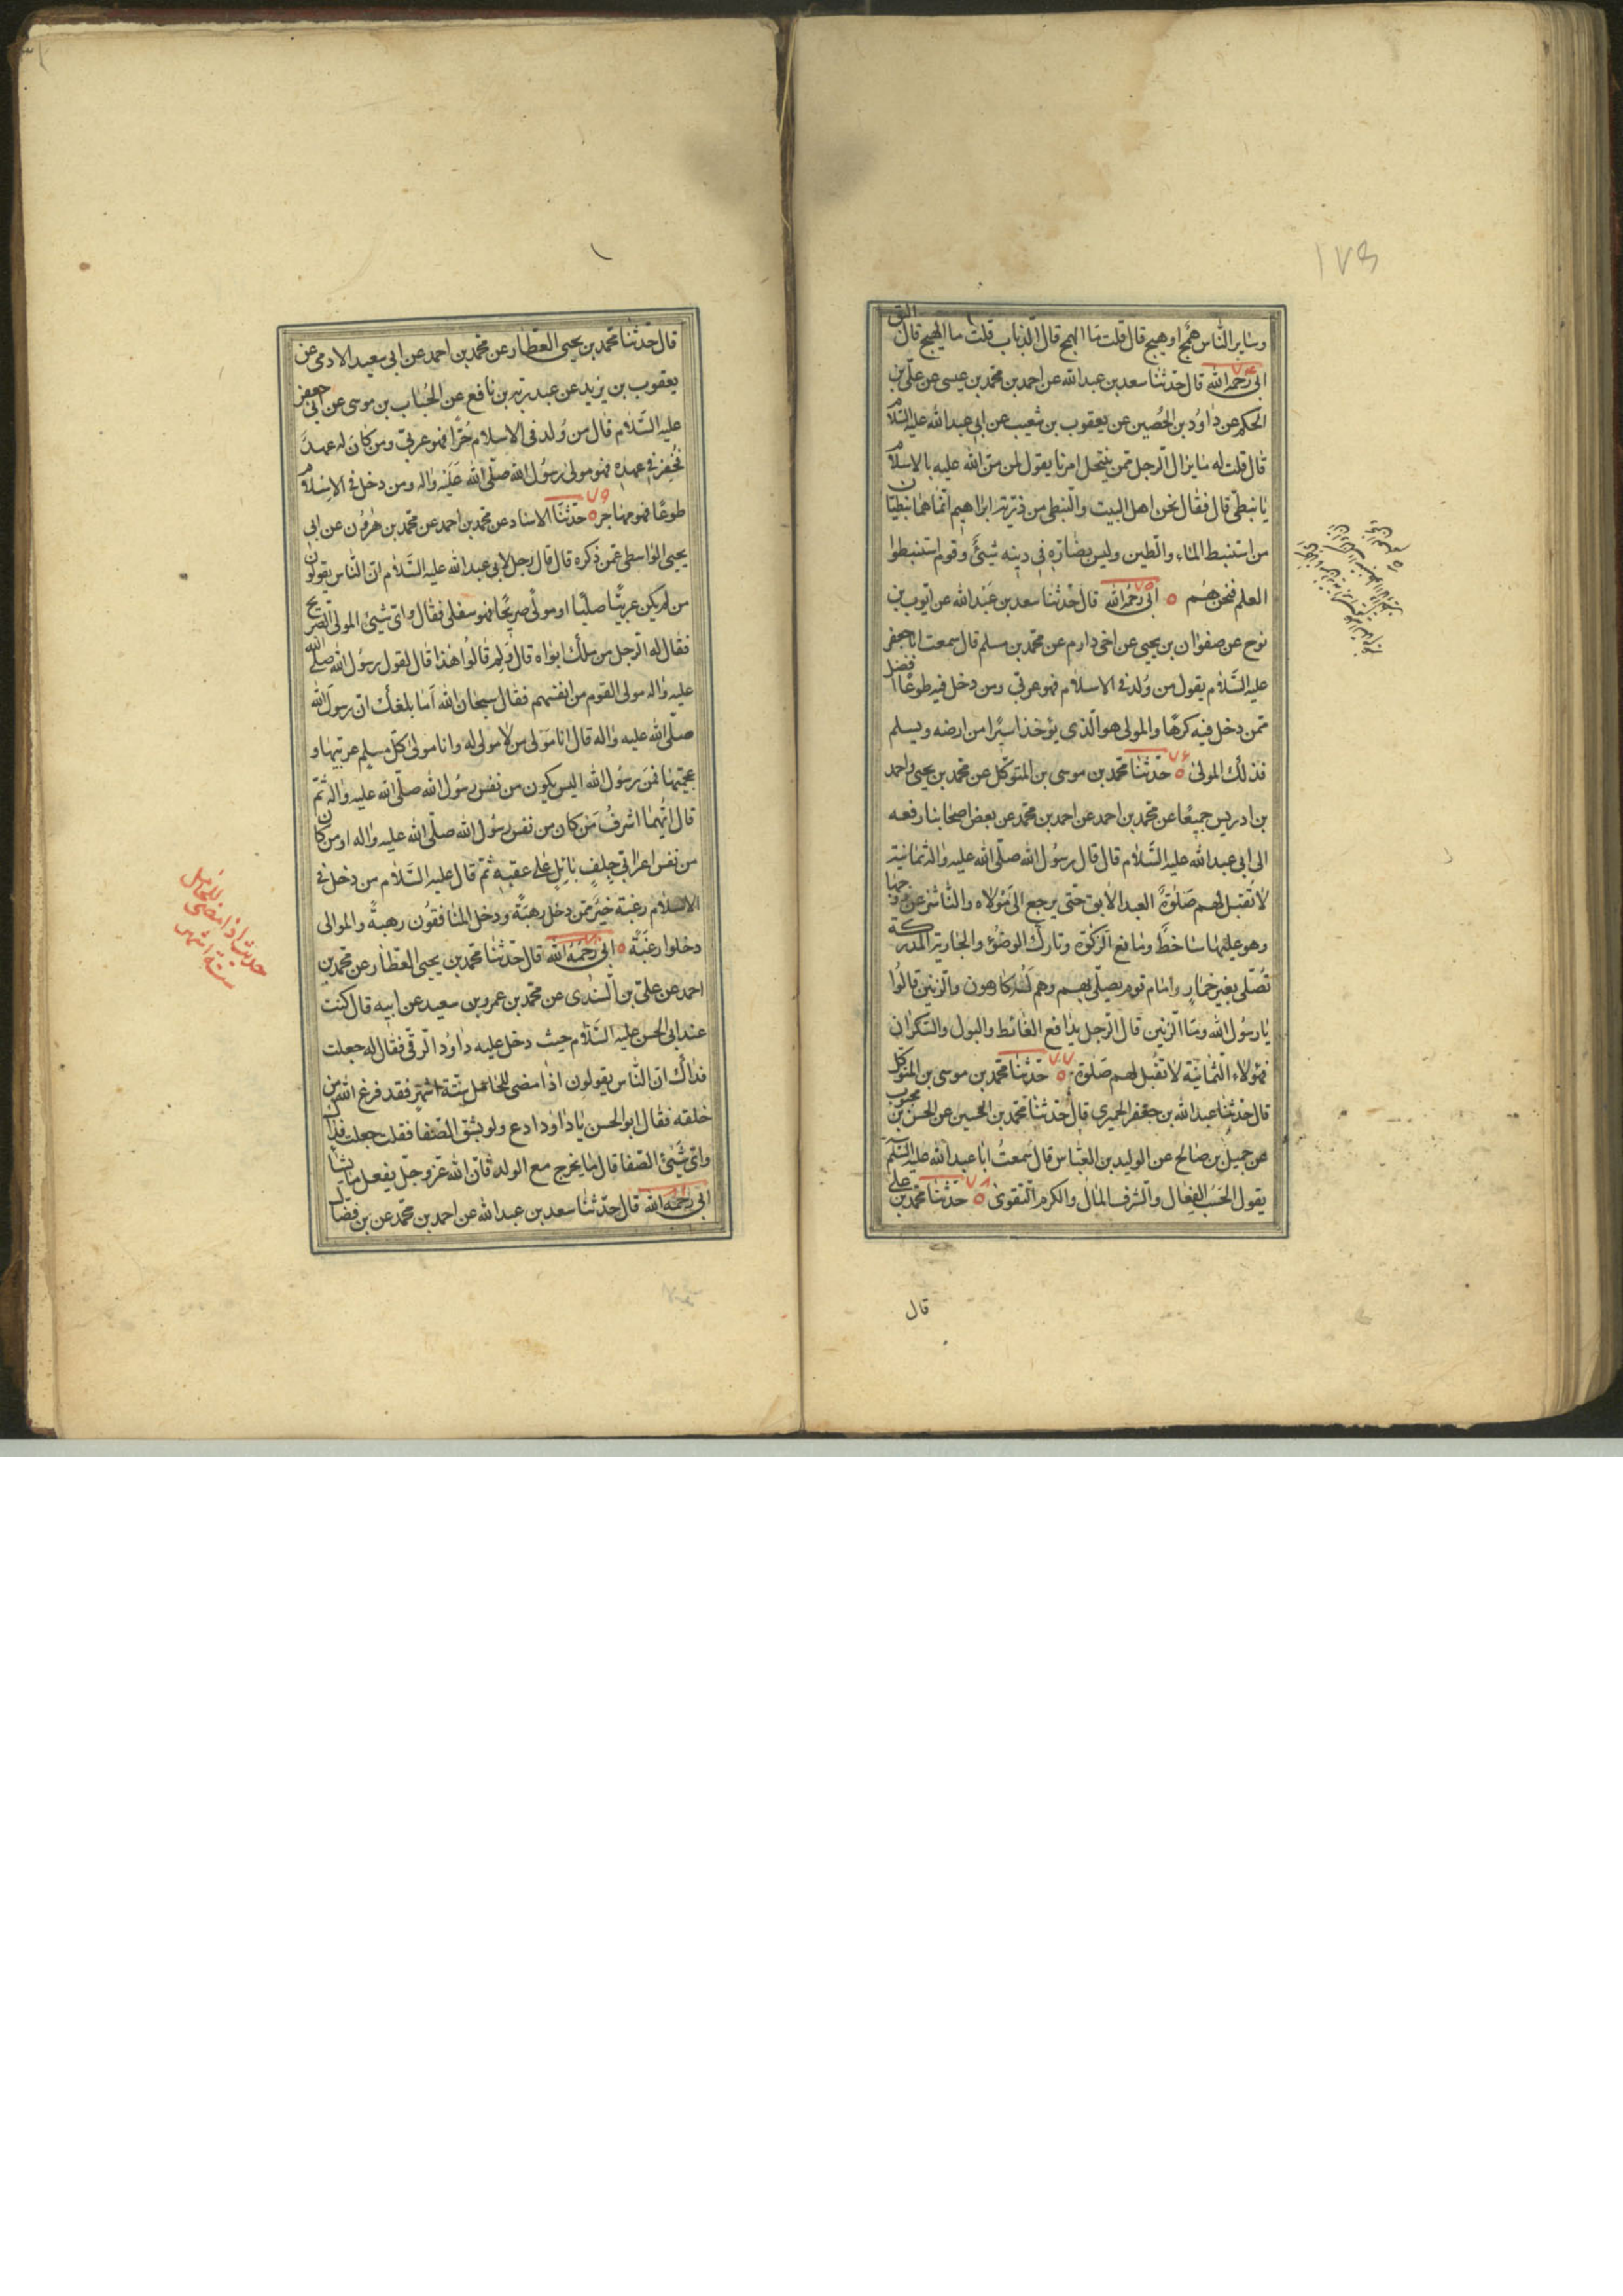 ١٧٥
وسٰاير النّاس همج او هيج قال قلت مٰا الهمج قال الذّباب قلت ما الهيج قال البق
٧٤
ابى رحمه الله قال حدّثنا سعد بن عبد الله عن احمد بن محمّد بن عيسى عن علىّ بن
الحكم عن داوُد بن الحُصين عن يعقوب بن شعيب عن ابى عبد الله عليه السّلام
قال قلت له مٰا يزال الرّجل ممّن ينتحل امرنا يقول لمن منّ الله عليه بالاسلام
يا نبطىّ قال فقال نحن اهل البيت والنّبطى من ذريّة ابراهيم انّما همٰا نبطيّان
من استنبط المٰاء والطّين وليس بضٰارّه فى دينه شيئ وقوم استنبطوا
٧٥
العلم فنحن هُم ابى رحمه الله قال حدّثنا سعد بن عبد الله عن ايّوب بن
نوح عن صفوان بن يحيى عن اخى دارم عن محمّد بن مسلم قال سمعت ابا جعفر
عليه السّلام يقول من وُلد فى الاسلام فهو عربى ومن دخل فيه طوعًا افضل
ممّن دخل فيه كرهًا والمولى هو الّذى يؤخذ اسيرًا من ارضه ويسلم
٧٦
فذلك المولى حدّثنا محمّد بن موسى بن المتوكّل عن محمّد بن يحيى واحمد
بن ادريس جميعًا عن محمّد بن احمد عن احمد بن محمّد عن بعض اصحابنا رفعه
الى ابى عبد الله عليه السّلام قال قال رسُول الله صلّى الله عليه واله ثمانية
لا تقبل لهم صَلوٰة العبد الآبق حتّى يرجع الى مَوْلاه والنّاشز عن زوجها
وهو عليها سٰاخط ومٰانع الزّكوة وتارك الوضُوء والجٰارية المدركة
تُصلّى بغير خمٰار وامٰام قوم يصلّى بهم وهم لَهُ كارهون والزّنين قالُوا
يا رسُول الله ومٰا الزّنين قال الرّجل يدٰافع الغٰائط والبول والسّكران
٧٧
فهؤلاء الثّمانية لا تقُبل لهم صَلوة حدّثنا محمّد بن موسى بن المتوكّل
قال حدّثنا عبد الله بن جعفر الحميرى قال حدّثنا محمّد بن الحسين عن الحسن بن محبوب
عن جميل بن صٰالح عن الوليد بن العبّاس قال سمعتُ ابا عبد الله عليه السّلم
٧٨
يقول الحَسَبُ الفِعٰال والشّرف المٰال والكرم التّقوىٰ حَدّثنا محمّد بن على
قال
قال حدّثنا محمّد بن يحيى العطّار عن محمّد بن احمد عن ابى سعيد الادمى عن
يعقوب بن يزيد عن عبد ربّه بن نافع عن الحُبٰاب بن موسى عن ابى جعفر
عليه السّلام قال من وُلد فى الاسلام حُرًّا فهو عربىّ ومن كان له عهد
فخُفِرَ فى عهده فهو مولى رسُول الله صلّى الله عليه واله ومن دخل فى الاسلام
٧٩
طوعًا فهو مهٰاجر حدّثنا الاسناد عن محمّد بن احمد عن محمّد بن هٰرُون عن ابى
يحيى الوٰاسطى عمّن ذكره قال قال رجل لابى عبد الله عليه السّلام انّ النّاس يقولون
من لم يكن عربيًّا صلبًا او مولًى صريحًا فهو سفلى فقال واىّ شيئ المولى الصّريح
فقال له الرّجل من ملك ابواه قال ولِمَ قٰالُوا هٰذا قال لقول رسُول الله صلّى الله
عليه واله مولى القوم من انفسهم فقال سبحٰان الله اَمٰا بلغك انّ رسول الله
صلّى الله عليه واله قال انا مَولى من لا مولى له وانا مولى كلّ مسلم عربيّها و
عجميّها فمن رسُول الله اليس يكون من نفس رسُول الله صلّى الله عليه واله ثمّ
قال ايّهما اشرفُ مَن كان من نفس رسُول الله صلّى الله عليه واله او من كان
من نفس اعرابىّ جِلفٍ بٰائلٍ على عقبيه ثمّ قال عليه السّلام من دخل فى
الاسلام رغبة خير ممّن دخل رهبةً ودخل المنٰافقون رهبةً والموالى
دخلوا رغبةً ابى رَحمَهُ الله قال حدّثنا محمّد بن يحيى العطّار عن محمّد بن
احمد عن علىّ بن السّندى عن محمّد بن عمرو بن سعيد عن ابيه قال كنت
عند ابى الحسن عليه السّلام حيث دخل عليه داوُد الرّقى فقال له جعلت
فدٰاك انّ النّاس يقولون اذا مضى للحٰامل ستّة اشهر فقد فرغ الله من
خلقه فقال ابو الحسن يا دٰاود ادع ولو بشقّ الصّفا فقلت جعلت فداك
واىّ شيئ الصّفا قال مٰا يخرج مع الولد فانّ الله عزّ وجلّ يفعل ما يشا
ابى رَحمَهُ الله قال حدّثنا سعد بن عبد الله عن احمد بن محمّد عن بن فضال
حديث اذا مضى للحامل
ستة اشهر